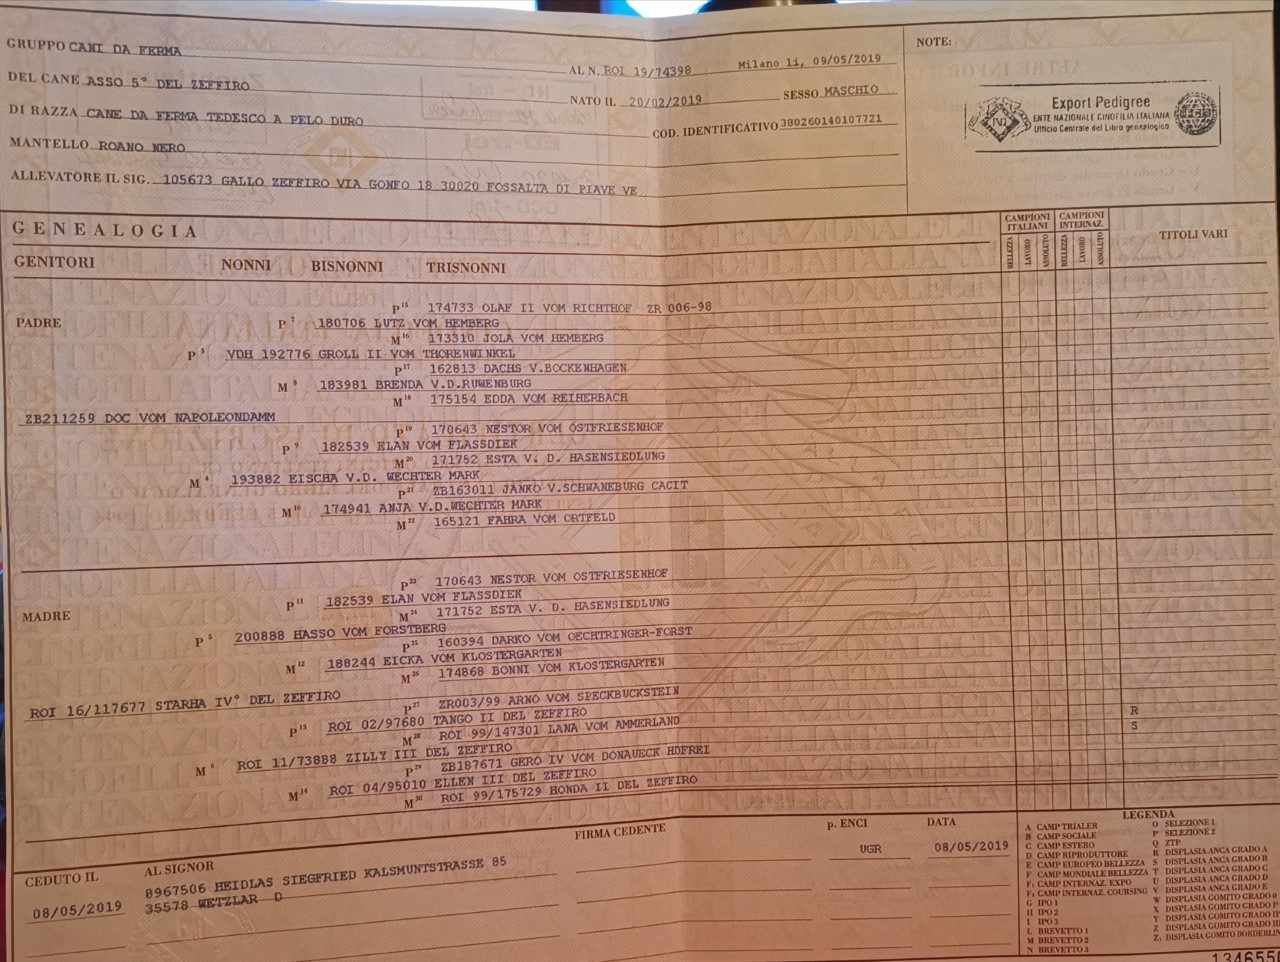 GRUPPO CANI DA FERMA
AL N. ROI 19/74398 Milano li, 09/05/2019
DEL CANE ASSO 5° DEL ZEFFIRO
NATO IL 20/02/2019 SESSO MASCHIO
DI RAZZA CANE DA FERMA TEDESCO A PELO DURO
COD. IDENTIFICATIVO 380260140107721
MANTELLO ROANO NERO
ALLEVATORE IL SIG. 105673 GALLO ZEFFIRO VIA GONFO 18 30020 FOSSALTA DI PIAVE VE
NOTE:
Export Pedigree
ENTE NAZIONALE CINOFILIA ITALIANA
Ufficio Centrale del Libro genealogico
FCI
GENEALOGIA
CAMPIONI ITALIANI
CAMPIONI INTERNAZ.
TITOLI VARI
BELLEZZA LAVORO ASSOLUTO BELLEZZA LAVORO ASSOLUTO
GENITORI NONNI BISNONNI TRISNONNI
P 15 174733 OLAF II VOM RICHTHOF ZR 006-98
PADRE P 7 180706 LUTZ VOM HEMBERG
M 16 173310 JOLA VOM HEMBERG
P 3 VDH 192776 GROLL II VOM THORENWINKEL
P 17 162813 DACHS V.BOCKENHAGEN
M 8 183981 BRENDA V.D.RUWENBURG
M 18 175154 EDDA VOM REIHERBACH
ZB211259 DOC VOM NAPOLEONDAMM
P 19 170643 NESTOR VOM OSTFRIESENHOF
P 9 182539 ELAN VOM FLASSDIEK
M 20 171752 ESTA V. D. HASENSIEDLUNG
M 4 193882 EISCHA V.D. WECHTER MARK
P 21 ZB163011 JANKO V.SCHWANEBURG CACIT
M 10 174941 ANJA V.D.WECHTER MARK
M 22 165121 FAHRA VOM ORTFELD
P 23 170643 NESTOR VOM OSTFRIESENHOF
MADRE P 11 182539 ELAN VOM FLASSDIEK
M 24 171752 ESTA V. D. HASENSIEDLUNG
P 5 200888 HASSO VOM FORSTBERG
P 25 160394 DARKO VOM OECHTRINGER-FORST
M 12 188244 EICKA VOM KLOSTERGARTEN
M 26 174868 BONNI VOM KLOSTERGARTEN
ROI 16/117677 STARHA IV° DEL ZEFFIRO
P 27 ZR003/99 ARNO VOM SPECKBUCKSTEIN
P 13 ROI 02/97680 TANGO II DEL ZEFFIRO R
M 28 ROI 99/147301 LANA VOM AMMERLAND S
M 6 ROI 11/73888 ZILLY III DEL ZEFFIRO
P 29 ZB187671 GERO IV VOM DONAUECK HDFREI
M 14 ROI 04/95010 ELLEN III DEL ZEFFIRO
M 30 ROI 99/175729 HONDA II DEL ZEFFIRO
CEDUTO IL AL SIGNOR FIRMA CEDENTE p. ENCI DATA
08/05/2019 8967506 HEIDLAS SIEGFRIED KALSMUNTSTRASSE 85 UGR 08/05/2019
35578 WETZLAR D
LEGENDA
A CAMP TRIALER
B CAMP SOCIALE
C CAMP ESTERO
D CAMP RIPRODUTTORE
E CAMP EUROPEO BELLEZZA
F CAMP MONDIALE BELLEZZA
F1 CAMP INTERNAZ. EXPO
F2 CAMP INTERNAZ. COURSING
G IPO 1
H IPO 2
I IPO 3
L BREVETTO 1
M BREVETTO 2
N BREVETTO 3
O SELEZIONE 1
P SELEZIONE 2
Q ZTP
R DISPLASIA ANCA GRADO A
S DISPLASIA ANCA GRADO B
T DISPLASIA ANCA GRADO C
U DISPLASIA ANCA GRADO D
V DISPLASIA ANCA GRADO E
W DISPLASIA GOMITO GRADO 0
X DISPLASIA GOMITO GRADO I°
Y DISPLASIA GOMITO GRADO II°
Z DISPLASIA GOMITO GRADO III
Z1 DISPLASIA GOMITO BORDERLIN